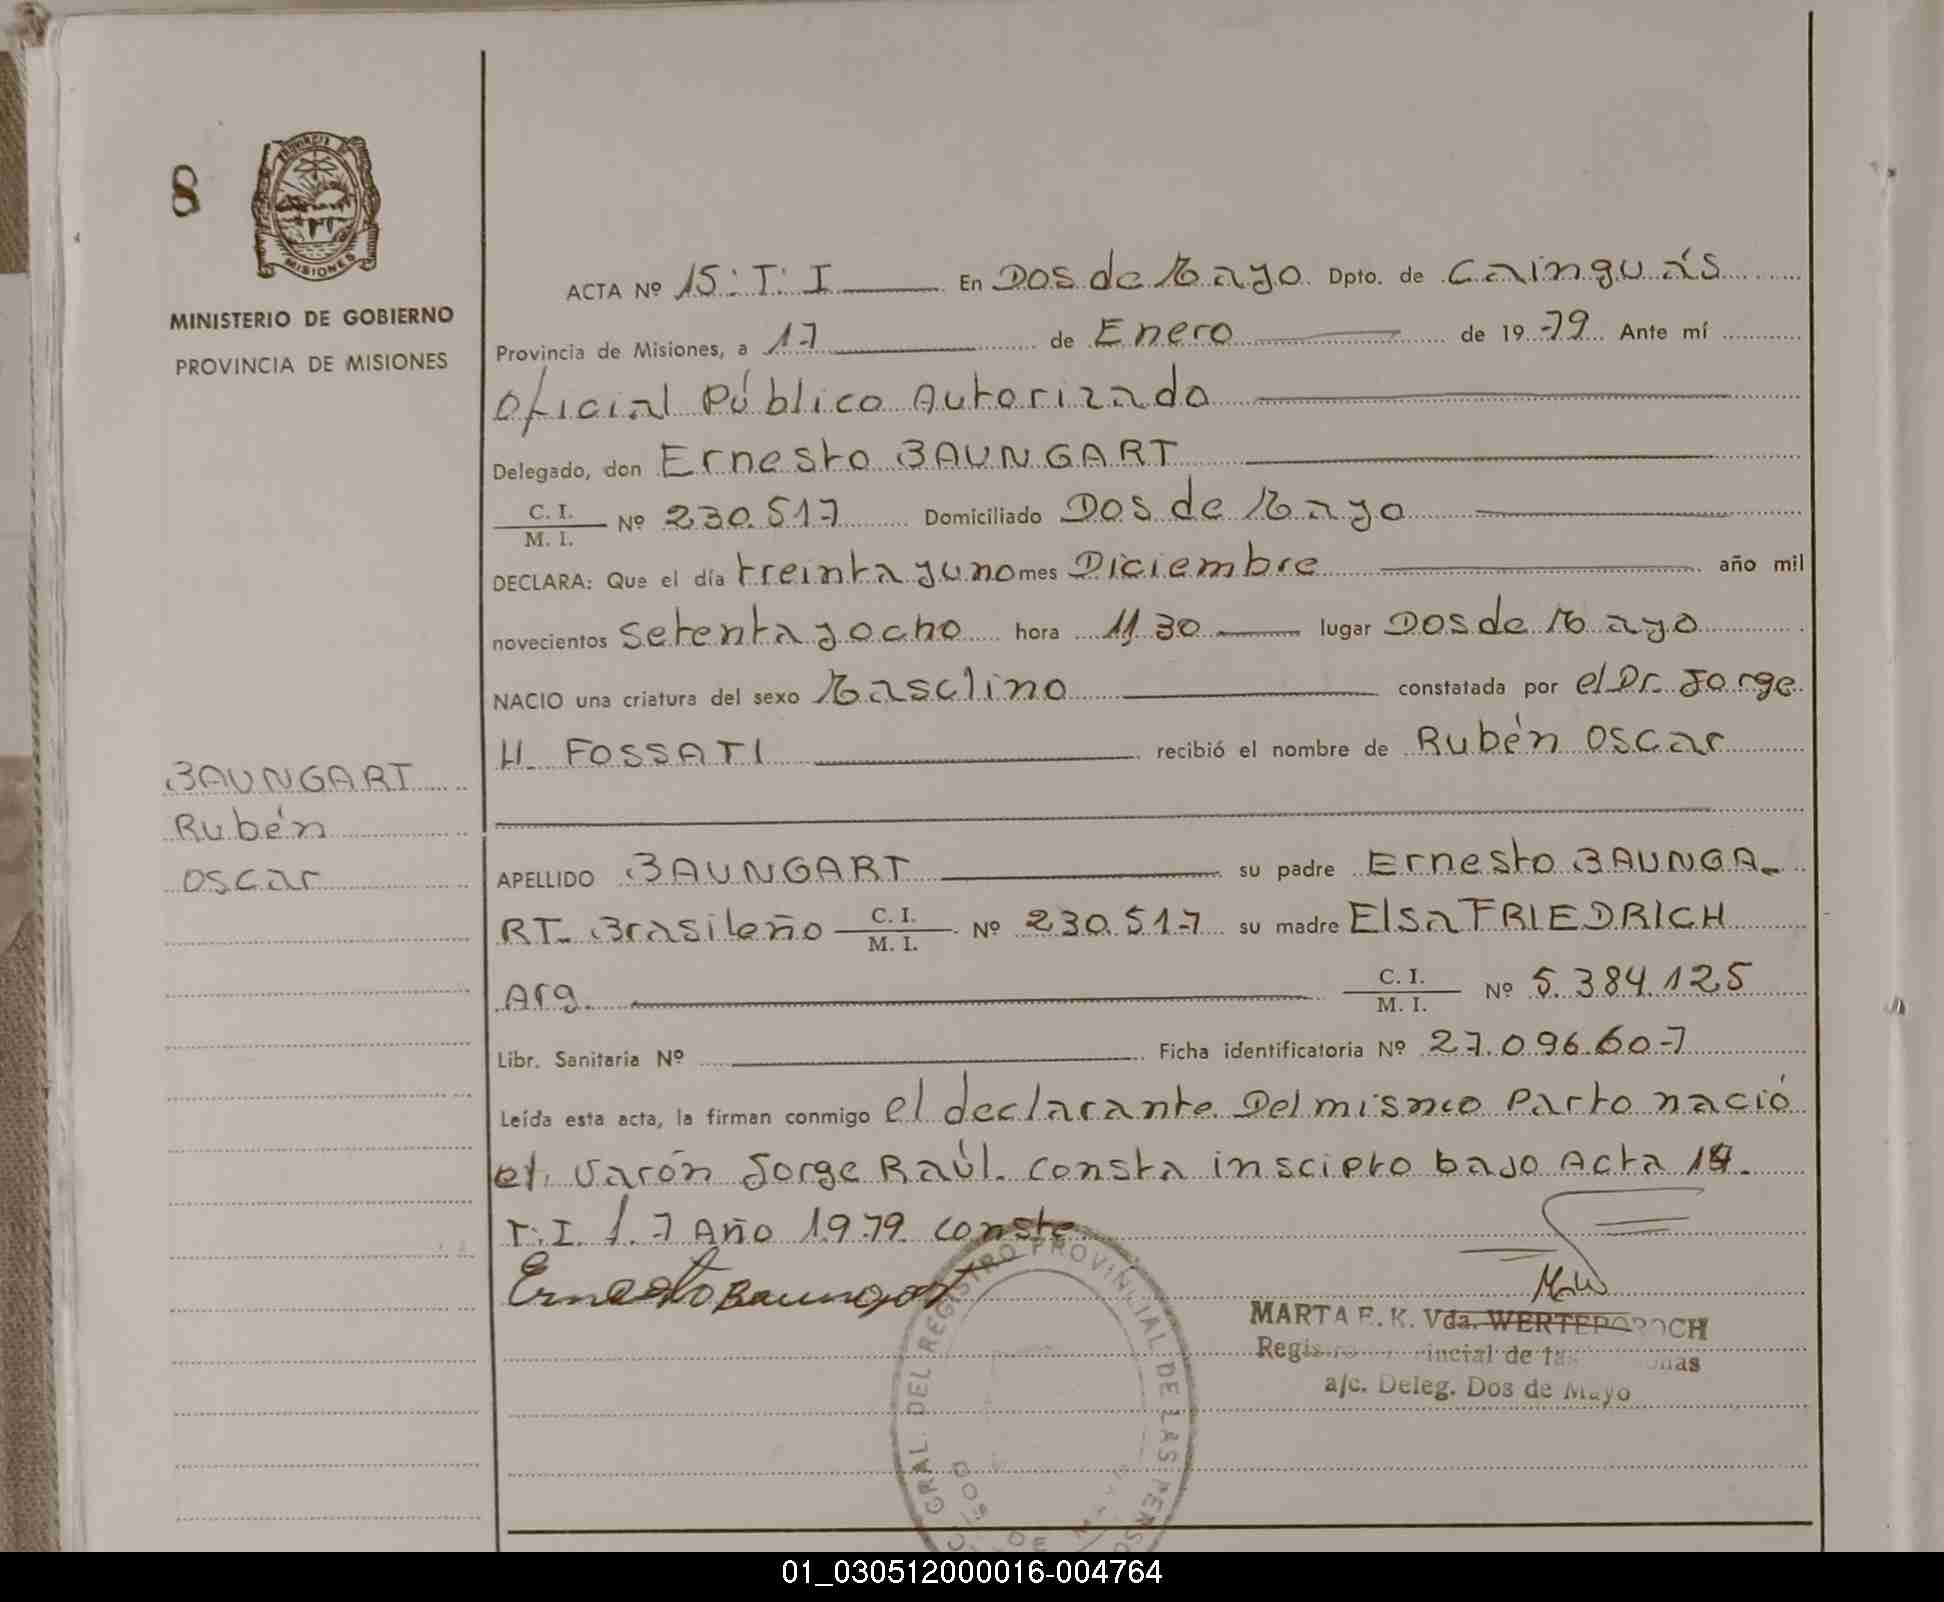 8
PROVINCIA DE
MISIONES
MINISTERIO DE GOBIERNO
PROVINCIA DE MISIONES
ACTA Nº 15: T: I En Dos de Mayo Dpto. de Cainguás
Provincia de Misiones, a 17 de Enero de 19 79 Ante mí
Oficial Público Autorizado
Delegado, don Ernesto BAUNGART
C. I.
M. I. Nº 230.517 Domiciliado Dos de Mayo
DECLARA: Que el día treinta y uno mes Diciembre año mil
novecientos setenta y ocho hora 11 30 lugar Dos de Mayo
NACIO una criatura del sexo Masclino constatada por el Dr. Jorge
H. FOSSATI recibió el nombre de Rubén Oscar
BAUNGART
Rubén
Oscar
APELLIDO BAUNGART su padre Ernesto BAUNGA-
RT- Brasileño C. I.
M. I. Nº 230.517 su madre Elsa FRIEDRICH
Arg. C. I.
M. I. Nº 5.384.125
Libr. Sanitaria Nº Ficha identificatoria Nº 27.096.607
Leída esta acta, la firman conmigo el declarante. Del mismo Parto nació
el varón Jorge Raúl. consta inscipto bajo Acta 14.
T: I. 1. 7 Año 1979. conste
Ernesto Baungart
MARTA E. K. Vda.
a/c. Deleg. Dos de Mayo
GRAL. DEL REGISTRO PROVINCIAL DE LAS PERSO
01_030512000016-004764